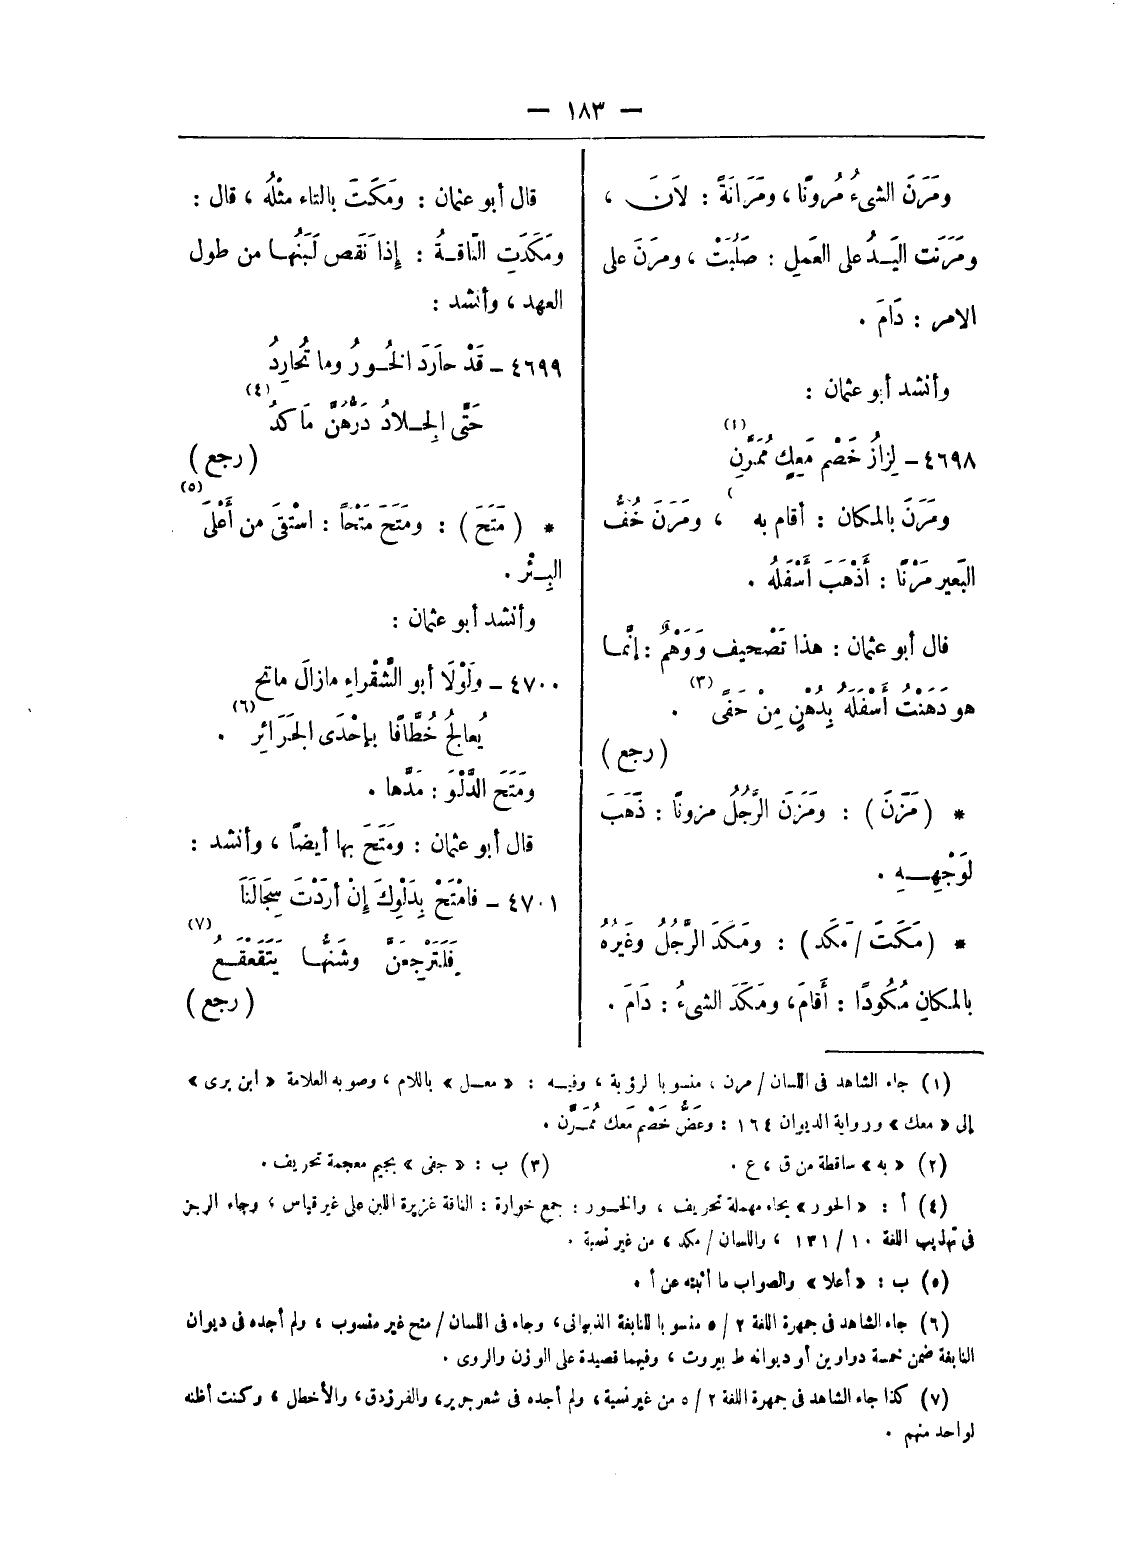 — ١٨٣ —
ومَرَنَ الشىءُ مُرونًا ، ومَرَانَةً : لاَنَ ،
ومَرَنت اليَـدُ على العَملِ : صَلُبَتْ ، ومرَنَ على
الامر : دَامَ .
وأنشد أبو عثمان :
٤٦٩٨ – لِزازُ خَصْمٍ مَعِكٍ مُمَرَّنِ (١)
ومَرَنَ بالمكان : أقام به ، ومَرَنَ خُفُّ
البَعير مَرْنًا : أَذْهَبَ أَسْفَلهُ .
قال أبو عثمان : هذا تَصْحيف وَوَهْمٌ : إنَّمـا
هو دَهَنْتُ أَسْفَلَهُ بِدُهْنٍ مِنْ حَفًى (٣) .
( رجع )
* ( مَزَنَ ) : ومَزَنَ الرَّجُلُ مزونًا : ذَهَبَ
لوَجْهِـــهِ .
* (مَكَتَ / مَكَد ) : ومَكَدَ الرَّجُلُ وغَيرُهُ
بالمكانِ مُكُودًا : أَقَامَ، ومَكَدَ الشىءُ : دَامَ .
قال أبو عثمان : ومَكَتَ بالتاء مثلُه ، قال :
ومَكَدَتِ النَّاقـةُ : إذا نَقَص لَبَنُهـا من طول
العهد ، وأنشد :
٤٦٩٩ – قَدْ حارَدَ الخُـورُ وما تُحارِدُ
حَتَّى الجِـلادُ دَرُّهُنَّ مَاكدُ (٤)
( رجع )
* ( مَتَحَ ) : ومَتَحَ مَتْحًا : اسْتقَى من أَعْلَى (٥)
البِـئْر .
وأنشد أبو عثمان :
٤٧٠٠ – ولَوْلَا أبو الشَّقْراءِ مازالَ ماتح
يُعالجُ خُطَّافًا بإحْدَى الجَرَائِر (٦) .
ومَتَحَ الدَّلْوَ : مَدَّها .
قال أبو عثمان : ومَتَحَ بها أيضًا ، وأنشد :
٤٧٠١ – فامْتَحْ بِدَلْوِكَ إنْ أَرَدْتَ سِجَالَنَا
فَلتَرْجِعَنَّ وشَنُّهـا يَتَقَعقَـعُ (٧)
( رجع )
(١) جاء الشاهد فى اللسان / مرن ، منسوبا لرؤبة ، وفيـه : « معـل » باللام ، وصوبه العلامة « ابن برى »
إلى « معك » ورواية الديوان ١٦٤ : وعَضُّ خَصْم مَعك مُمَـرَّن .
(٢) « به » ساقطة من ق ، ع .
(٣) ب : « جفى » بجيم معجمة تحريف .
(٤) أ : « الحور » بحاء مهملة تحريف ، والخـور : جمع خوارة : الناقة غزيرة اللبن على غير قياس ، وجاء الرجز
فى تهذيب اللغة ١٠ / ١٣١ ، واللسان / مكد ، من غير نسبة .
(٥) ب : « أعلا » والصواب ما أثبته عن أ .
(٦) جاء الشاهد فى جمهرة اللغة ٢ / ٥ منسوبا للنابغة الذبيانى، وجاء فى اللسان / متح غير منسوب ، ولم أجده فى ديوان
النابغة ضمن خمسة دواوين أو ديوانه ط بيروت ، وفيهما قصيدة على الوزن والروى .
(٧) كذا جاء الشاهد فى جمهرة اللغة ٢ / ٥ من غير نسبة ، ولم أجده فى شعر جرير، والفرزدق، والأخطل ، وكنت أظنه
لواحد منهم .